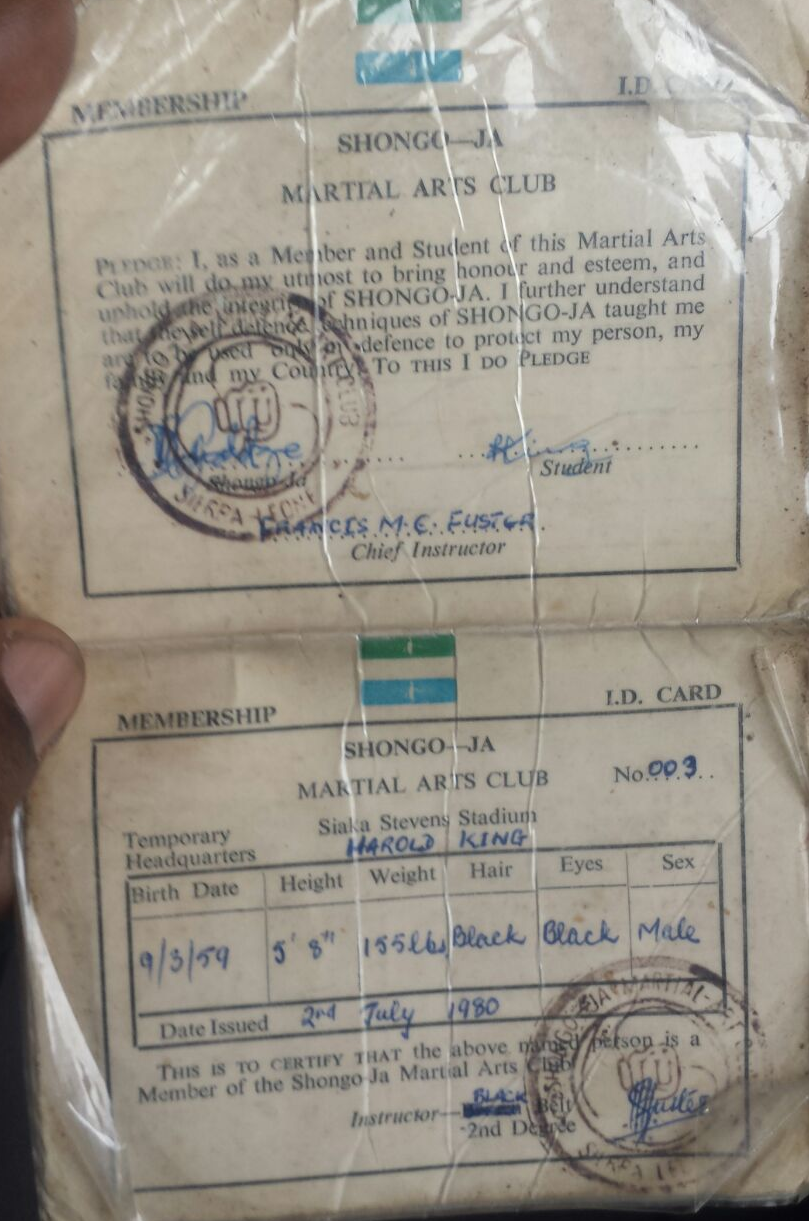 MEMBERSHIP I.D. CARD
SHONGO—JA
MARTIAL ARTS CLUB
PLEDGE: I, as a Member and Student of this Martial Arts
Club will do my utmost to bring honour and esteem, and
uphold the integrity of SHONGO-JA. I further understand
that the self defence techniques of SHONGO-JA taught me
are to be used only in defence to protect my person, my
family and my Country. TO THIS I DO PLEDGE
SHONGO CLUB
SIERRA LEONE
King
Shongo-Ja Student
FRANCIS M.C. FUSTER.
Chief Instructor
MEMBERSHIP I.D. CARD
SHONGO—JA
MARTIAL ARTS CLUB No. 003
Temporary Headquarters Siaka Stevens Stadium
HAROLD KING
Birth Date Height Weight Hair Eyes Sex
9/3/59 5' 8" 155lbs Black Black Male
Date Issued 2nd July 1980
THIS IS TO CERTIFY THAT the above named person is a
Member of the Shongo-Ja Martial Arts Club
Instructor— BLACK Belt
-2nd Degree
SHONGO-JA MARTIAL-ART
SIERRA LE